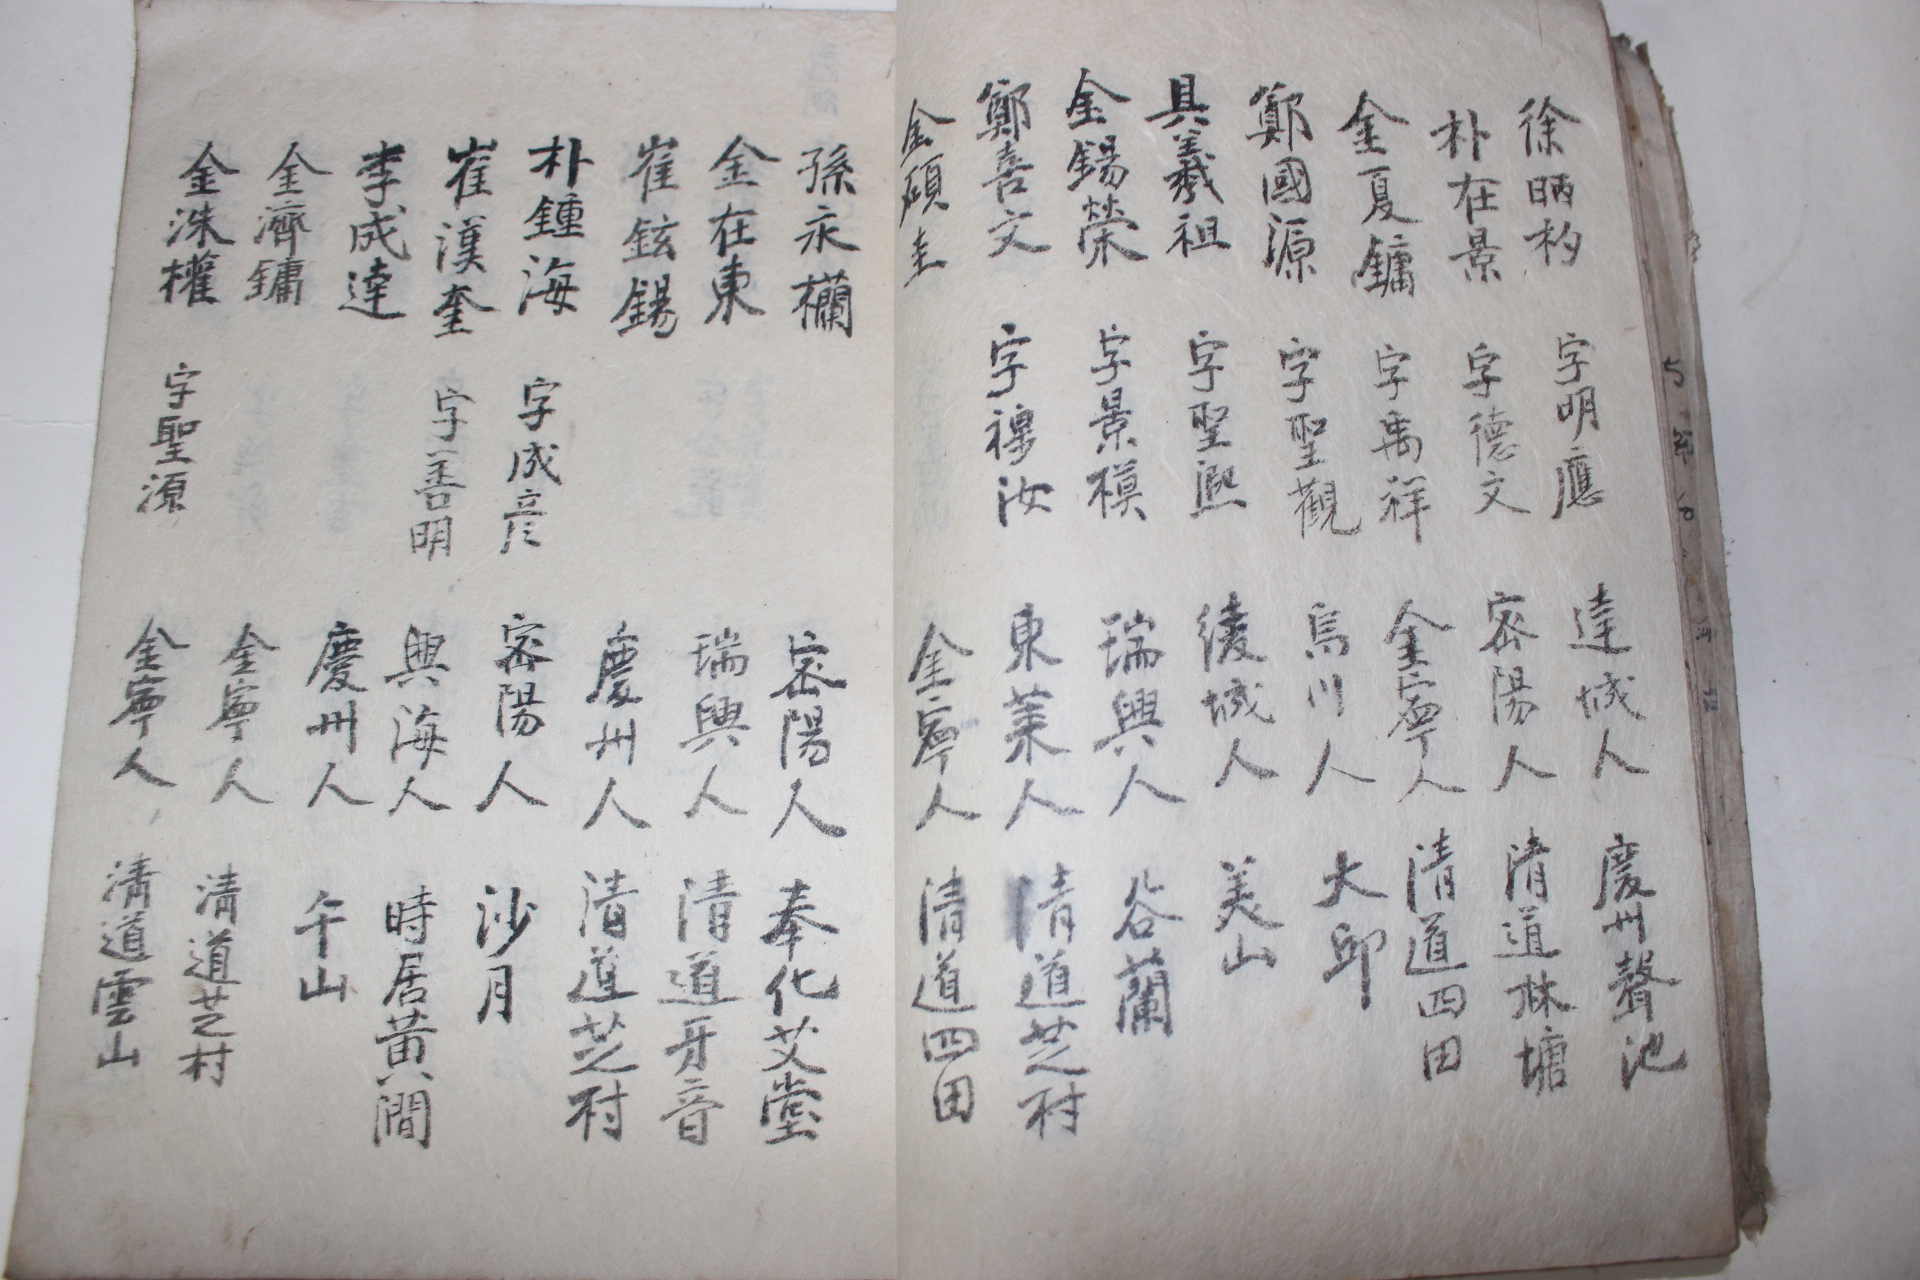 徐昞杓 字明應 達城人 慶州聲池
朴在景 字德文 密陽人 淸道林塘
金夏鏞 字禹祥 金寧人 清道四田
鄭國源 字聖觀 烏川人 大邱
具羲祖 字聖熙 綾城人 美山
金錫榮 字景模 瑞興人 谷蘭
鄭喜文 字禈汝 東萊人 清道芝村
金碩圭 金寧人 清道四田
孫永欄 密陽人 奉化艾堂
金在東 瑞興人 清道牙音
崔鉉錫 慶州人 清道芝村
朴鍾海 字成彦 密陽人 沙月
崔漢奎 字善明 興海人 時居黃澗
李成達 慶州人 午山
金濟鏞 金寧人 清道芝村
金洙權 字聖源 金寧人 淸道雲山